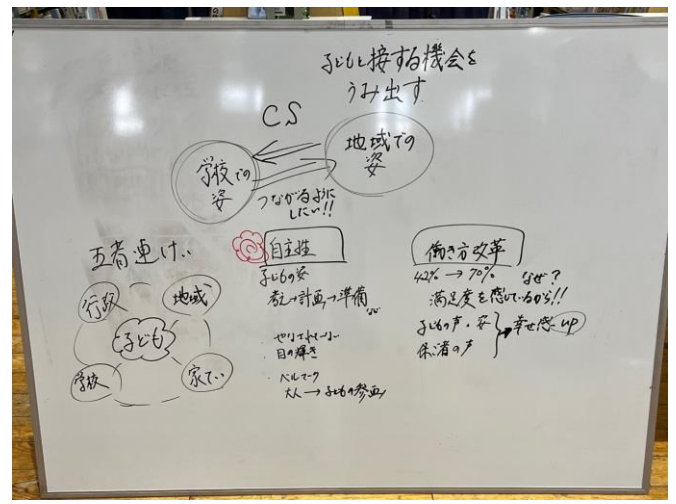 子どもと接する機会を
うみ出す
CS
学校での
姿
地域での
姿
つながるように
したい!!
五者連けい
行政
地域
子ども
学校
家てい
自主性
子どもの姿
考え→計画→準備
など
・やらされていない
・目の輝き
・ベルマーク
大人→子どもの参画
働き方改革
42% → 70% なぜ?
満足度を感じているから!!
子どもの声・姿
保ご者の声
幸せ感up